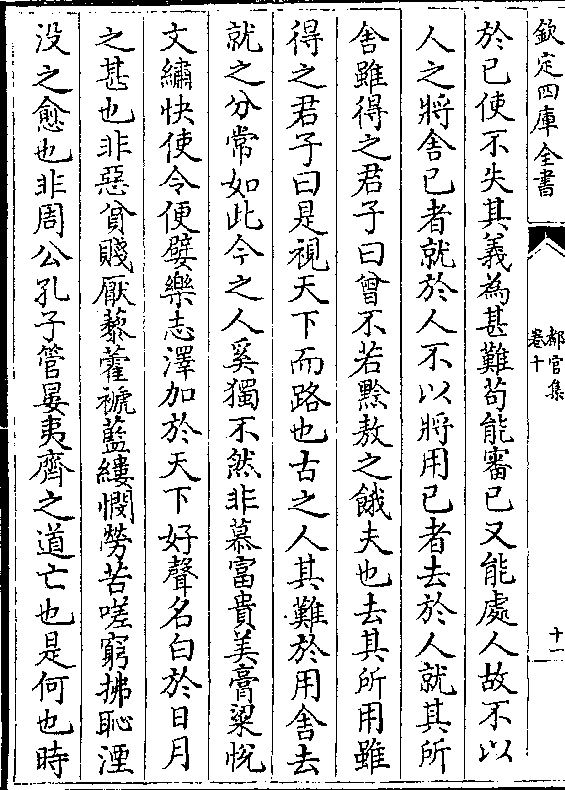 欽定四庫全書
都官集
卷十
十一
於已使不失其義為甚難苟能審已又能處人故不以
人之將舍已者就於人不以將用已者去於人就其所
舍雖得之君子曰曾不若黔敖之餓夫也去其所用雖
得之君子曰是視天下而路也古之人其難於用舍去
就之分常如此今之人奚獨不然非慕富貴美膏粱悅
文繡快使令便嬖樂志澤加於天下好聲名白於日月
之甚也非惡貧賤厭藜藿褫藍縷憫勞苦嗟窮拂恥湮
没之愈也非周公孔子管晏夷齊之道亡也是何也時